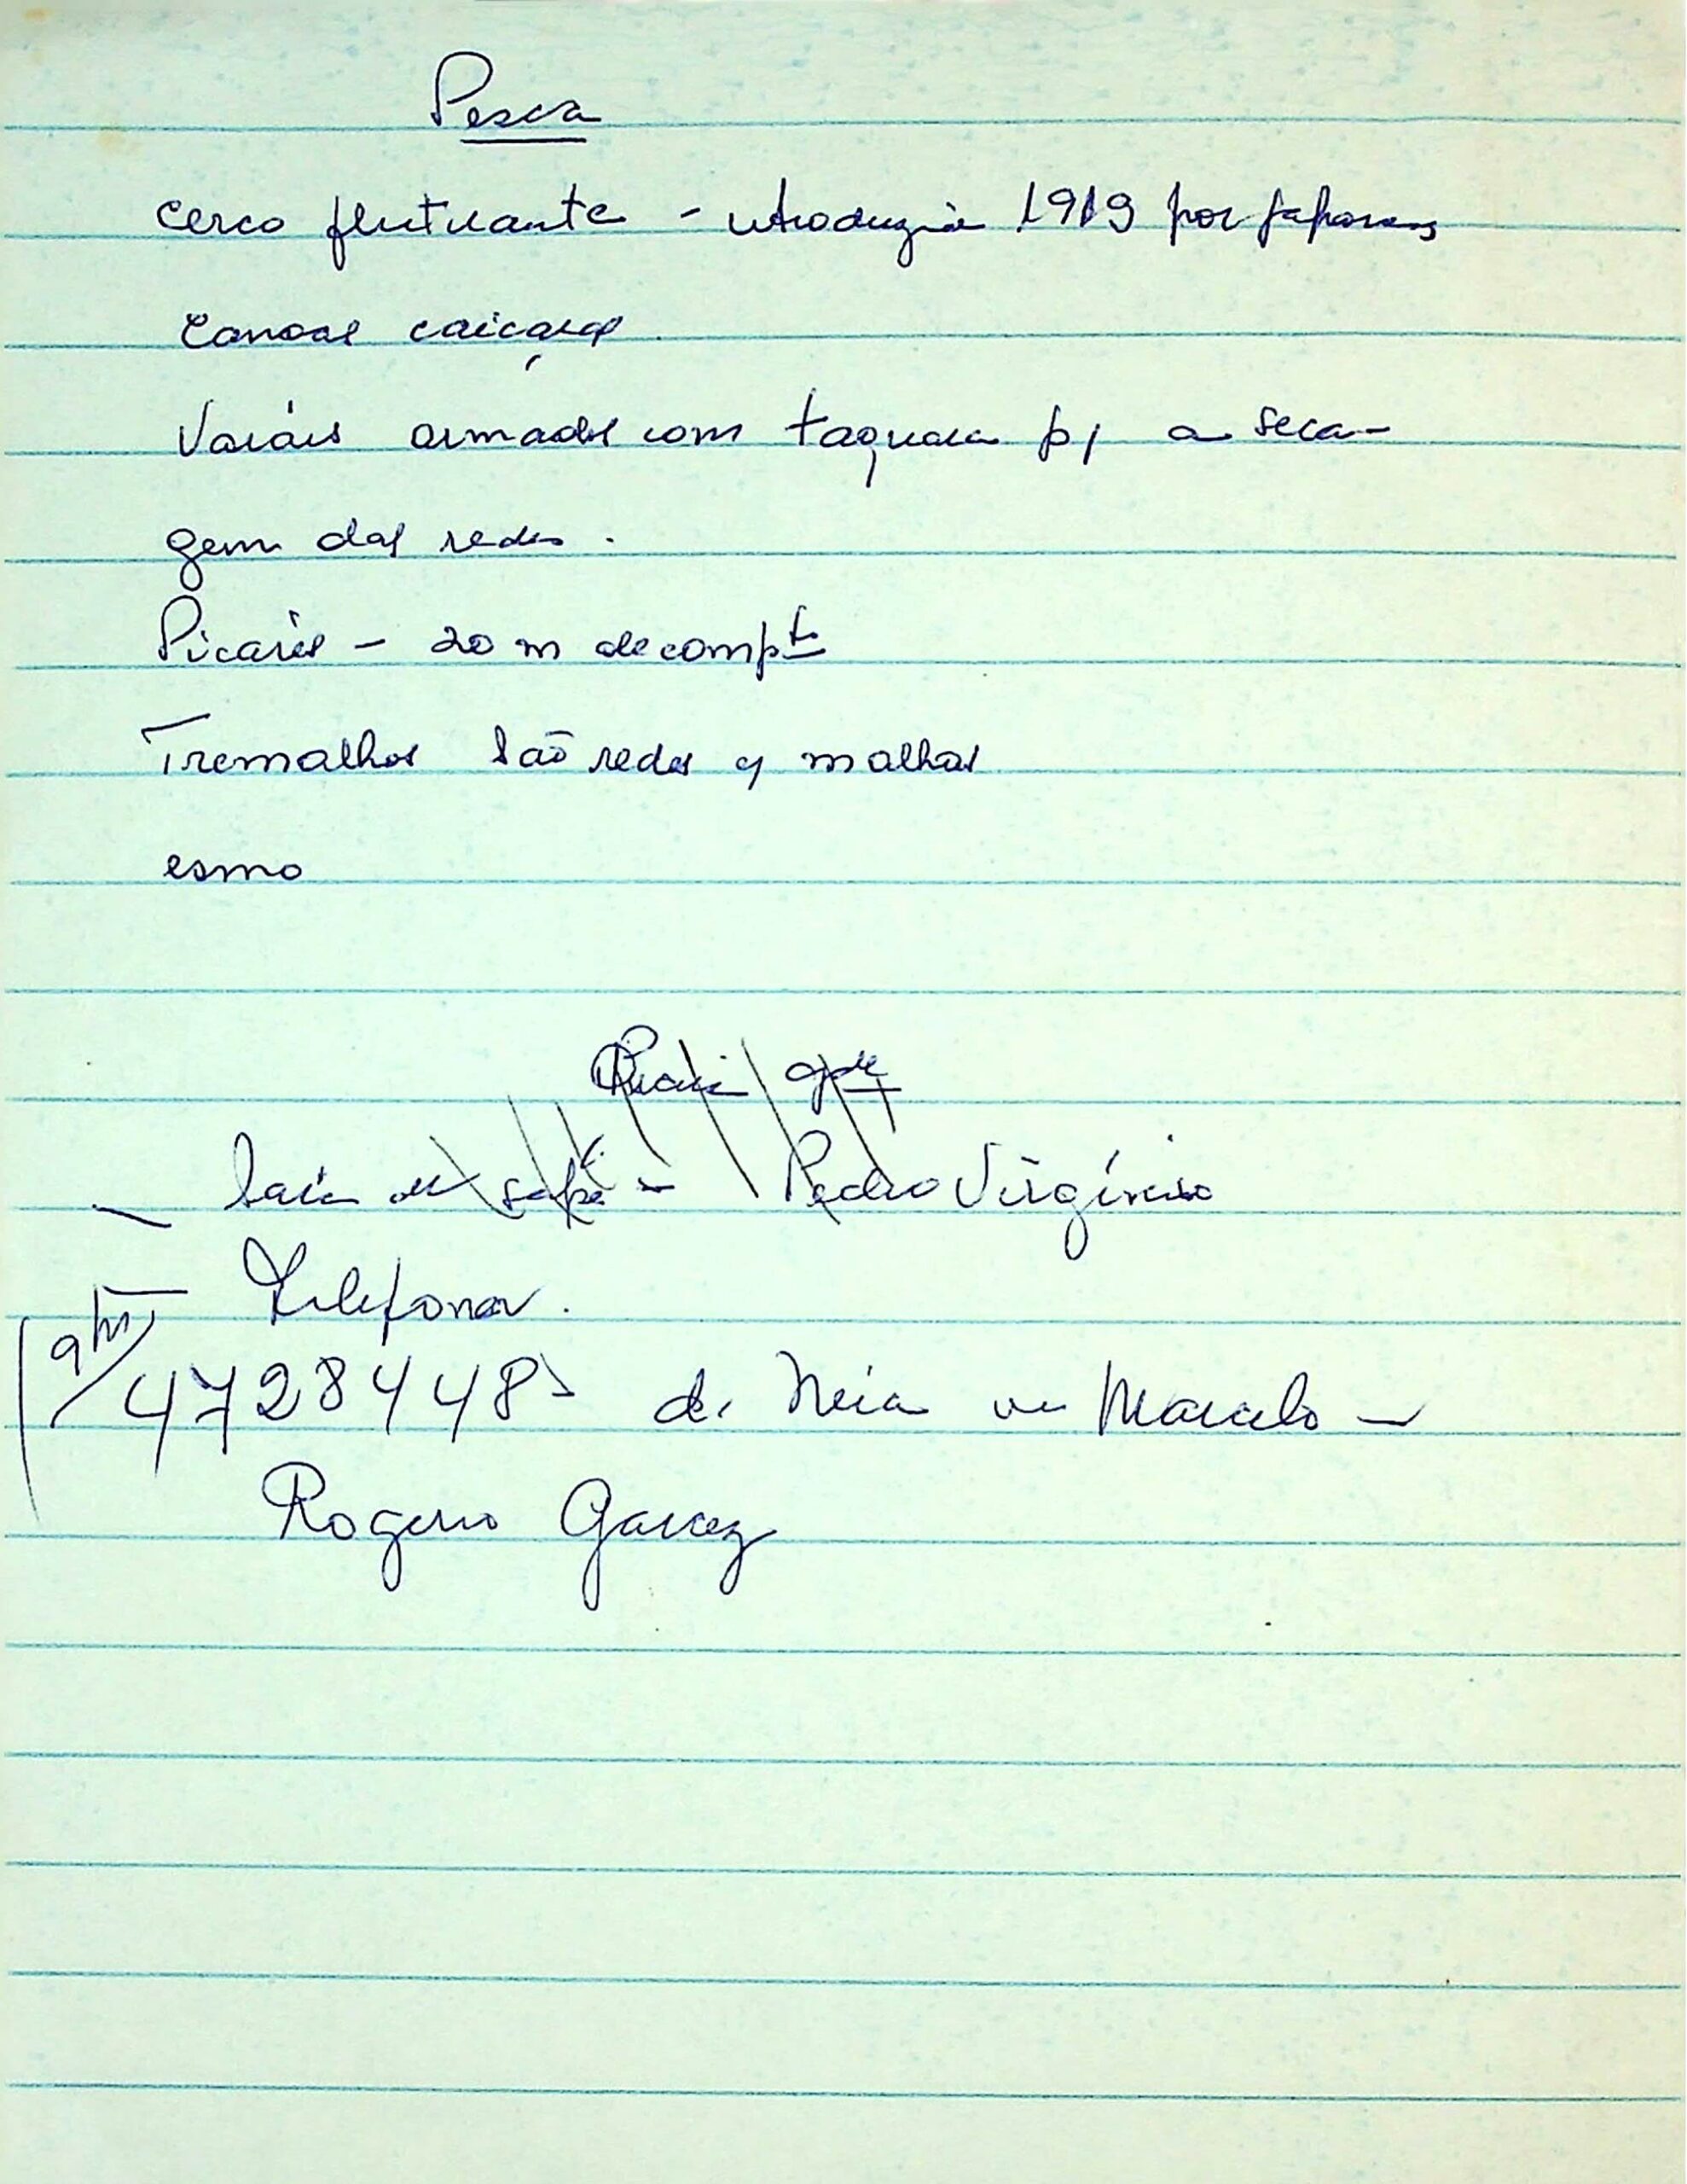 Pesca
cerco flutuante - introduzido 1919 por japoneses
canoas caiçaras
Varais armados com taquara p/ a seca-
gem das redes.
Picarés - 20 m de compto
Tremalhos são redes c/ malhas
esmo
Praia gde
— Saia de sapé - Pedro Virgínio
— Telefonar.
(9hs) 4728448 d. Neia ou Marcelo -
Rogerio Garcez